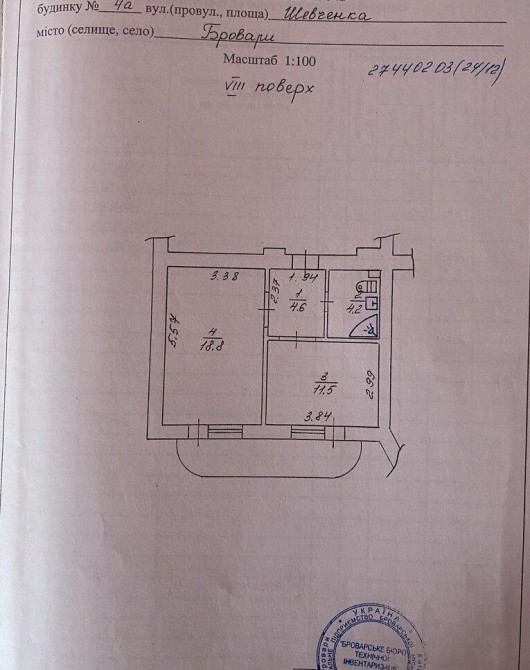 будинку № 4а вул.(провул., площа) Шевченка
місто (селище, село) Бровари
Масштаб 1:100
27440203(24/12)
VIII поверх
3.38
2.37
1.94
1
4.6
2
4.2
5.57
4
18.8
3
11.5
2.99
3.84
УКРАЇНА
"БРОВАРСЬКЕ БЮРО
ТЕХНІЧНОЇ
ІНВЕНТАРИЗАЦІЇ